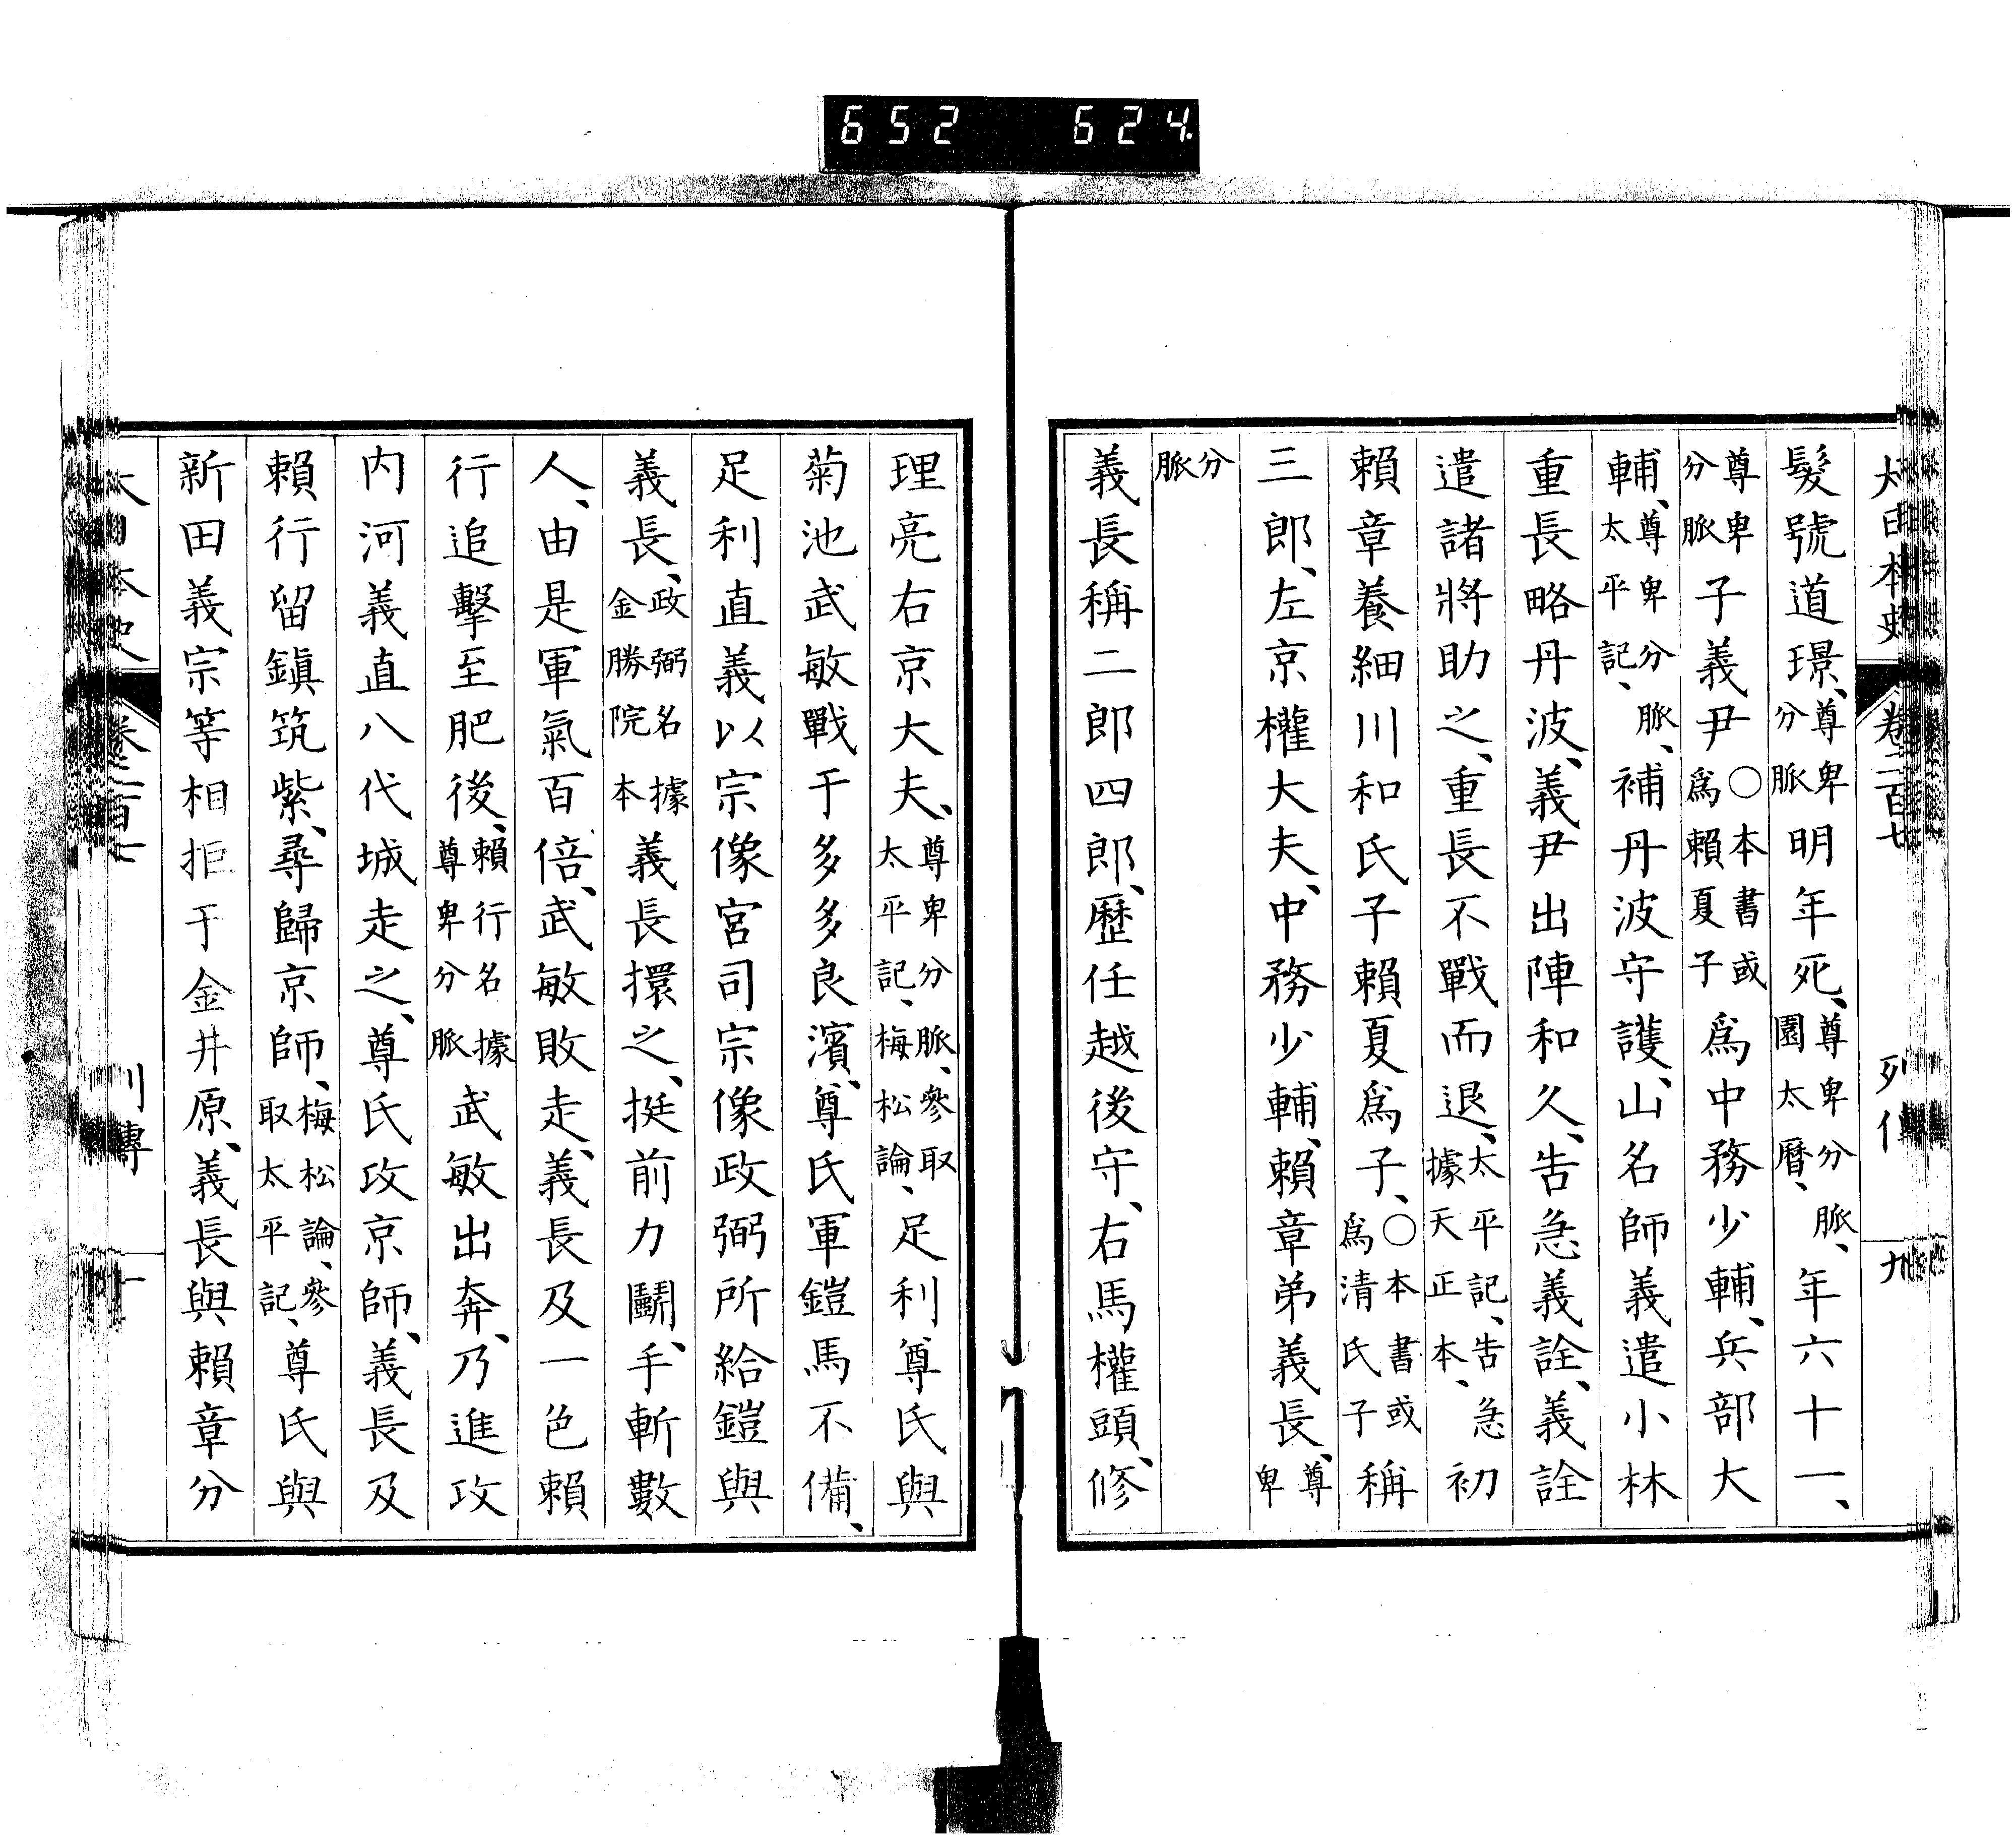 652 624
大日本史 卷二百七 列傳 九
髮號道璟、尊卑分脈明年死、尊卑分脈、園太曆、年六十一、
尊卑分脈子義尹○本書或爲賴夏子爲中務少輔、兵部大
輔、尊卑分脈、太平記、補丹波守護、山名師義遣小林
重長略丹波、義尹出陣和久、告急義詮、義詮
遣諸將助之、重長不戰而退、太平記、告急據天正本、初
賴章養細川和氏子賴夏爲子、○本書或爲清氏子稱
三郎、左京權大夫、中務少輔、賴章弟義長、尊卑
分脈
義長稱二郎四郎、歷任越後守、右馬權頭、修
理亮右京大夫、尊卑分脈、參取太平記、梅松論、足利尊氏與
菊池武敏戰于多多良濱、尊氏軍鎧馬不備、
足利直義以宗像宮司宗像政弼所給鎧與
義長、政弼名據金勝院本義長擐之、挺前力鬭、手斬數
人、由是軍氣百倍、武敏敗走、義長及一色賴
行追擊至肥後、賴行名據尊卑分脈武敏出奔、乃進攻
内河義直八代城走之、尊氏攻京師、義長及
賴行留鎭筑紫、尋歸京師、梅松論、參取太平記、尊氏與
新田義宗等相拒于金井原、義長與賴章分
大日本史 卷二百七 列傳